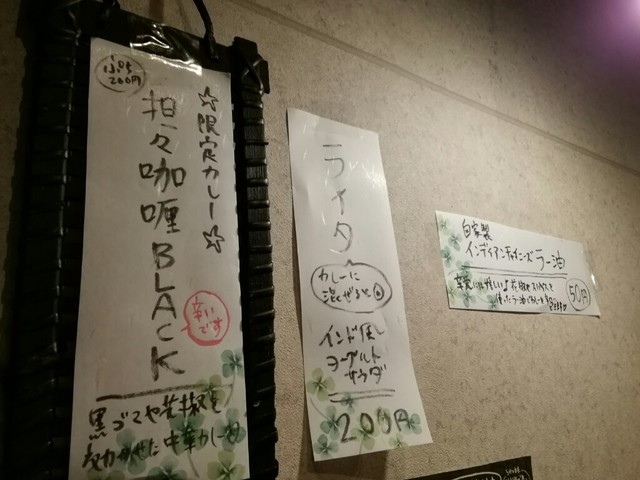 ☆限定カレー☆
担々咖喱BLACK
辛いです
200円
黒ゴマや花椒を
効かせた中華カレー
ライタ
カレーに
混ぜると◎
インド風
ヨーグルト
サラダ
200円
自家製
インディアンチャイニーズラー油
50円